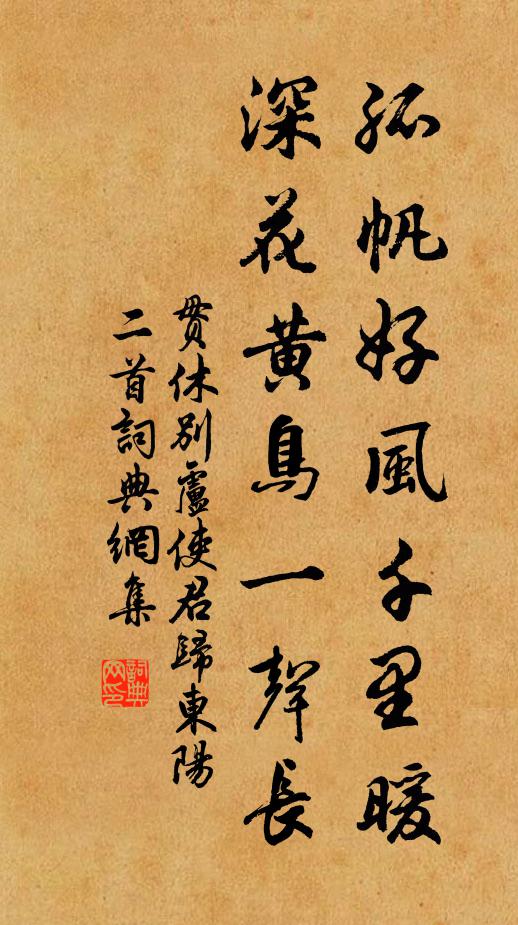 孤帆好風千里暖
深花黃鳥一聲長
貫休別盧使君歸東陽
二首詞典網集
詞典網印